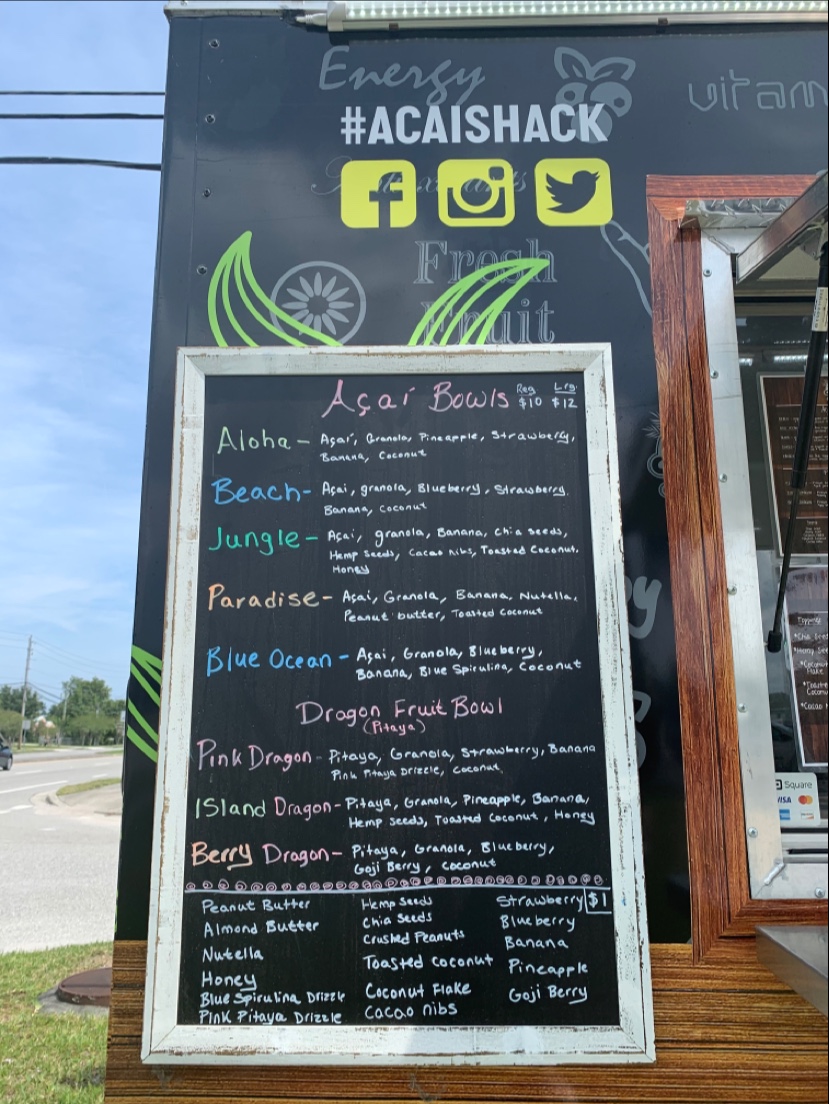 Energy
vitam
#ACAISHACK
Fresh
Fruit
Açaí Bowls Reg. Lrg.
$10 $12
Aloha - Açaí, Granola, Pineapple, Strawberry,
Banana, Coconut
Beach - Açai, granola, Blueberry, Strawberry.
Banana, coconut
Jungle - Açai, granola, Banana, Chia seeds,
Hemp Seeds, Cacao Nibs, Toasted Coconut,
Honey
Paradise - Açai, Granola, Banana, Nutella,
Peanut butter, Toasted Coconut
Blue Ocean - Açai, Granola, Blueberry,
Banana, Blue Spirulina, Coconut
Dragon Fruit Bowl
(Pitaya)
Pink Dragon - Pitaya, Granola, Strawberry, Banana
Pink Pitaya Drizzle, Coconut
Island Dragon - Pitaya, Granola, Pineapple, Banana,
Hemp seeds, Toasted Coconut, Honey
Berry Dragon - Pitaya, Granola, Blueberry,
Goji Berry, Coconut
$1
Peanut Butter
Almond Butter
Nutella
Honey
Blue Spirulina Drizzle
Pink Pitaya Drizzle
Hemp Seeds
Chia Seeds
Crushed Peanuts
Toasted Coconut
Coconut Flake
Cacao nibs
Strawberry
Blueberry
Banana
Pineapple
Goji Berry
*Chia See
*Hemp See
*Coconu
Flake
*Toaste
Coconu
*Cacao
Square
VISA